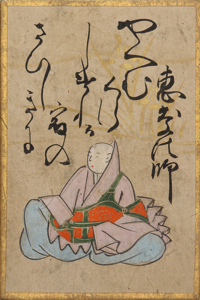 惠慶法師
やへむ
くら
しけれる
宿の
さひし
きに